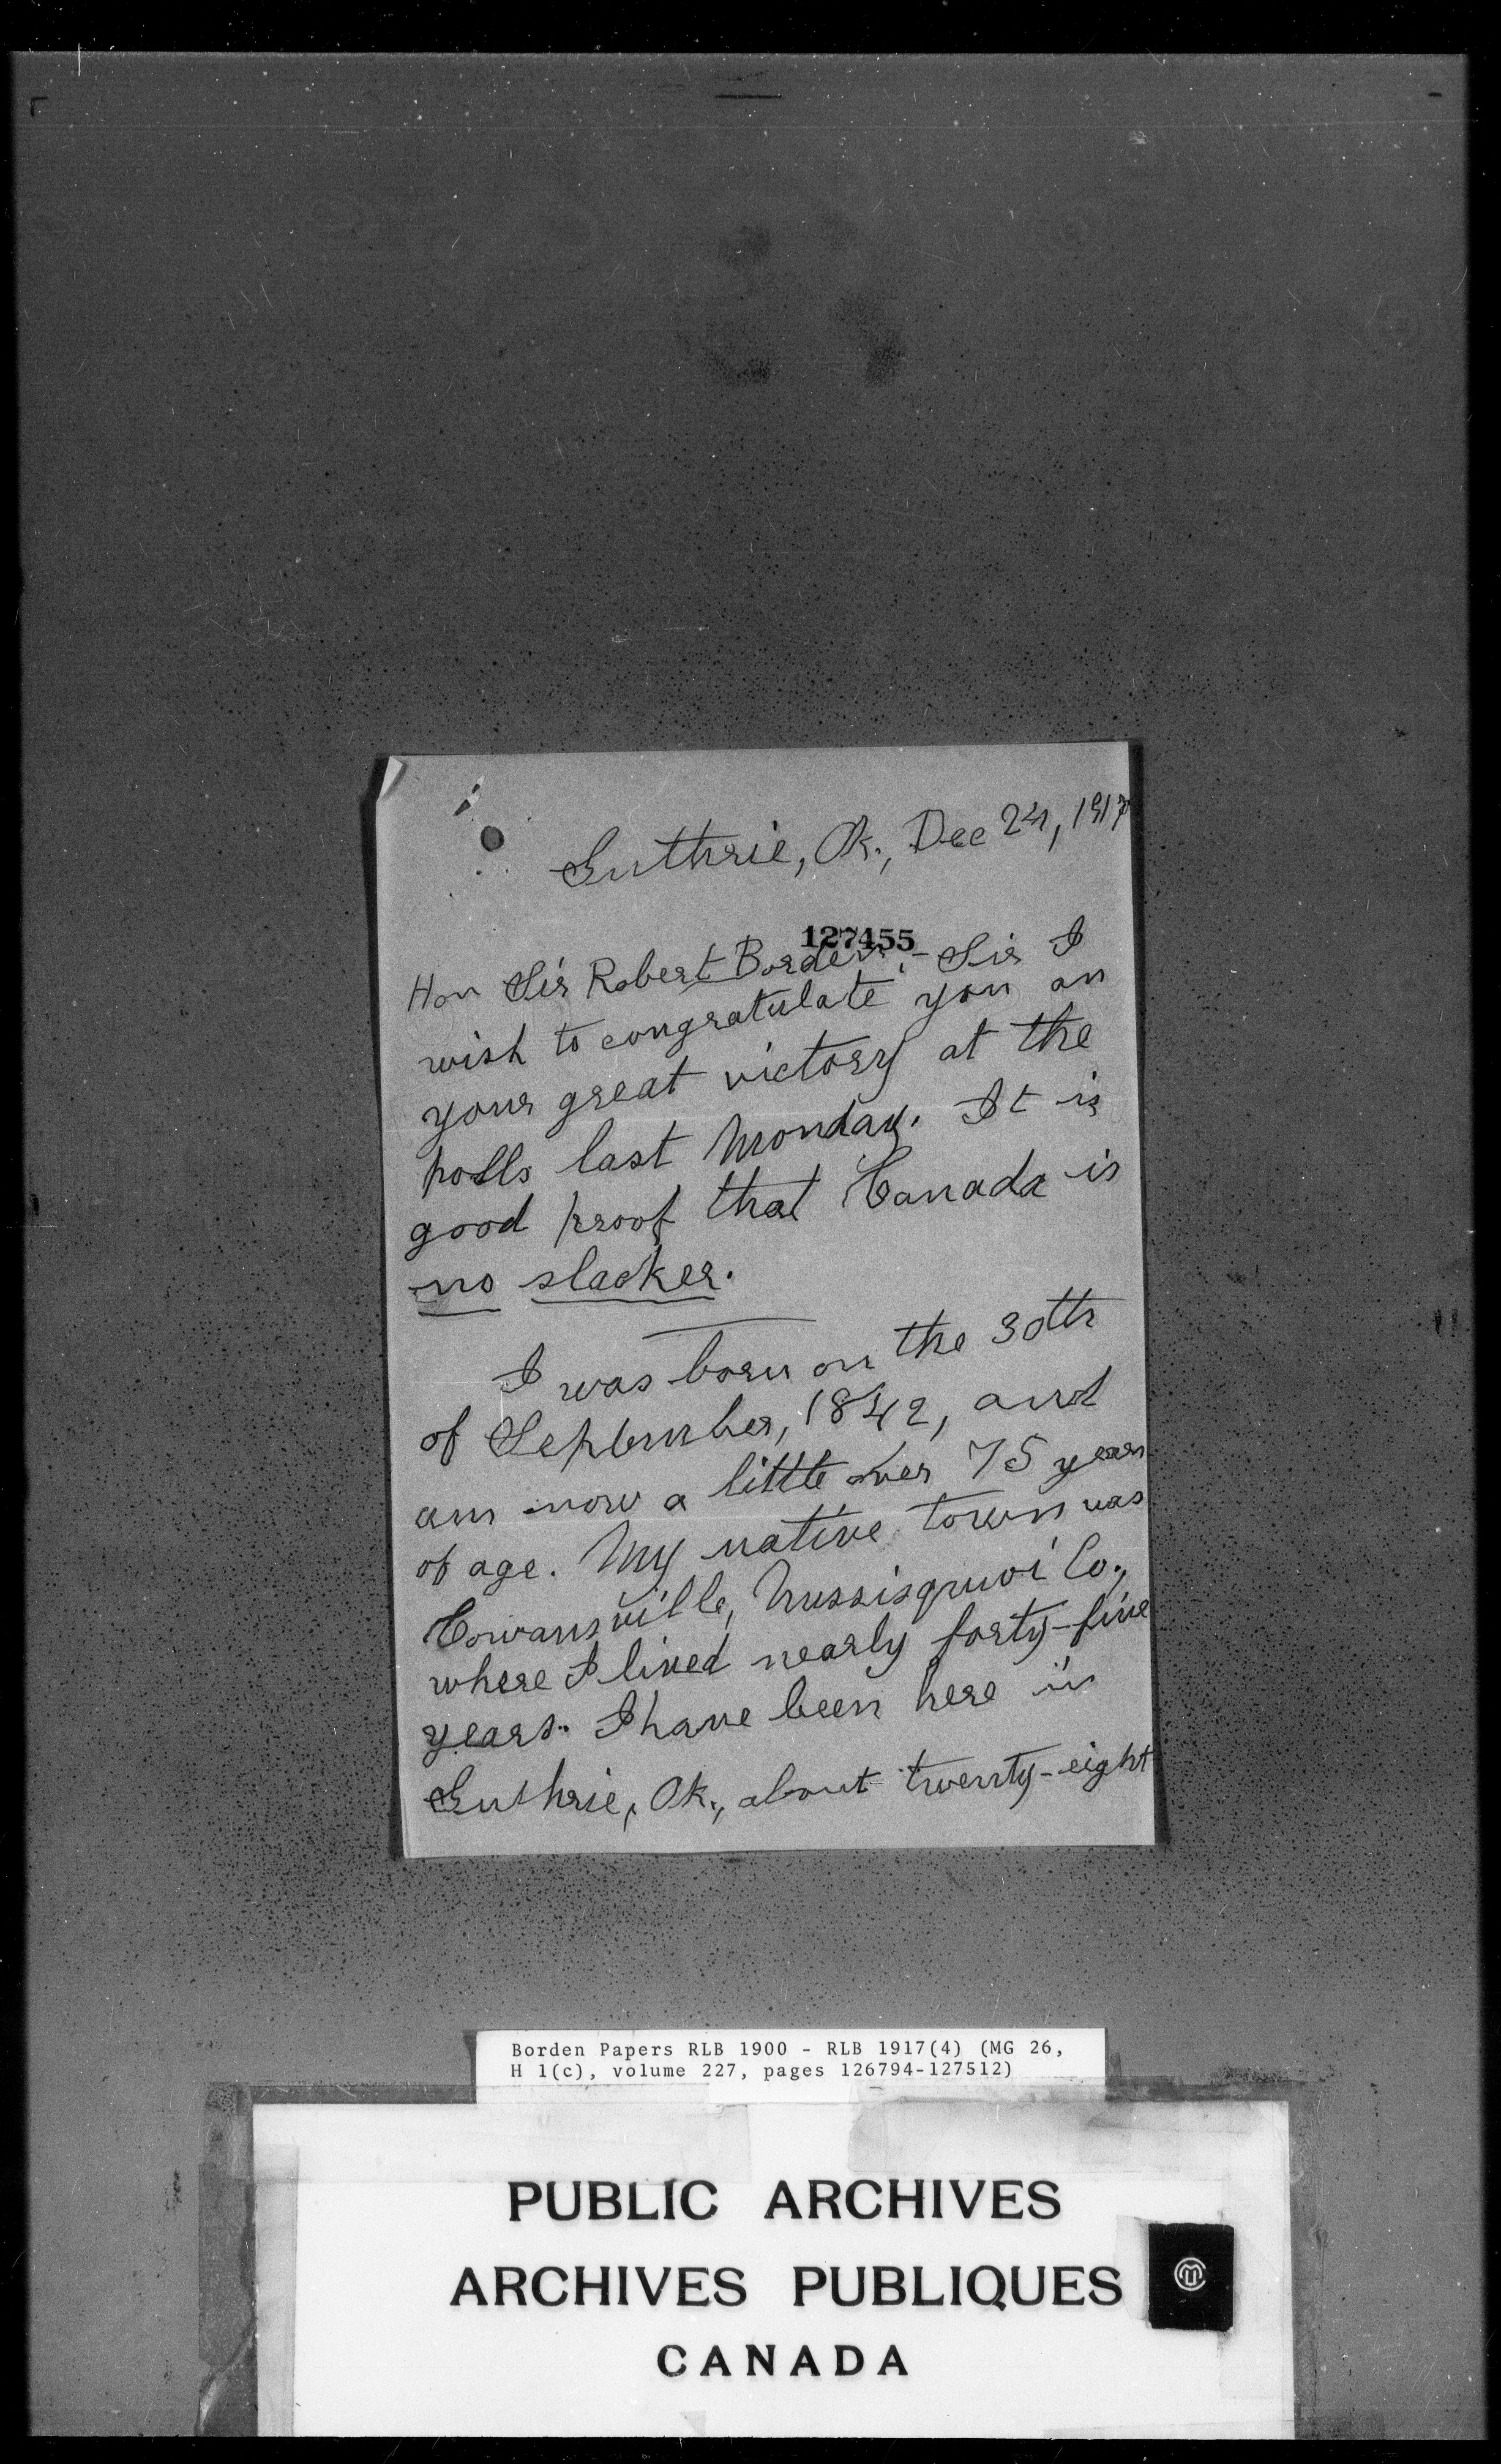 Guthrie, Ok., Dec 24, 1917
127455
Hon Sir Robert Borden:- Sir I
wish to congratulate you on
your great victory at the
polls last Monday. It is
good proof that Canada is
no slacker.
I was born on the 30th
of September, 1842, and
am now a little over 75 years
of age. My native town was
Cowansville, Missisquoi Co.,
where I lived nearly forty-five
years. I have been here in
Guthrie, Ok., about twenty-eight
Borden Papers RLB 1900 - RLB 1917(4) (MG 26,
H 1(c), volume 227, pages 126794-127512)
PUBLIC ARCHIVES
ARCHIVES PUBLIQUES
CANADA